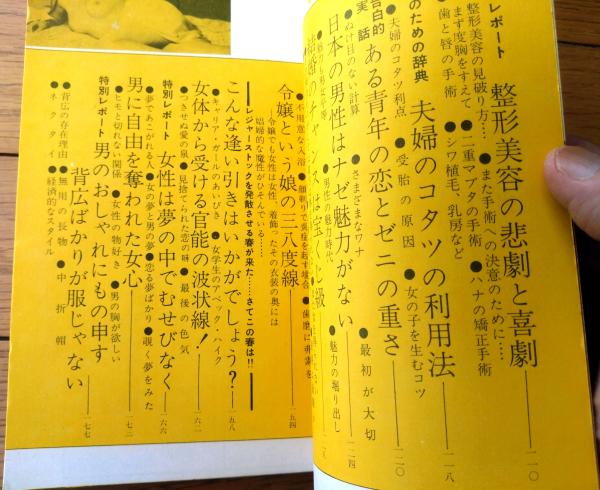 レポート 整形美容の悲劇と喜劇 一一〇
整形美容の見破り方…
まず度胸をすえて
●また手術への決意のために……
歯と唇の手術
●二重マブタの手術
●ハナの矯正手術
●シワ植毛、乳房など
のための辞典 夫婦のコタツの利用法 一一八
●夫婦のコタツ利点
●受胎の原因
●女の子を生むコツ
告白的実話 ある青年の恋とゼニの重さ 一二〇
●ぬけ目のない計算
●さまざまなワナ
●最初が大切
日本の男性はナゼ魅力がない 一二四
●男性の魅力時代
●魅力の掘り出し
●不用意な入浴
令嬢という娘の三八度線 一五四
令嬢でも女性は女性、着飾ったその衣装の奥には
娼婦的な魔性がひそんでいる……
レジャーストックを発散させる春が来た……さてこの春は!!
こんな逢い引きはいかがでしょう? 一五八
●キャリア・ガールのあいびき
●女学生のアベック・ハイク
女体から受ける官能の波状線! 一六二
●つきせぬ愛の泉
●見捨てられた恋の味
●最後の色気
特別レポート 女性は夢の中でむせびなく 一六六
●夢であこがれる人
●女の夢と男の夢
●恋る夢ばかり
●覗く夢をみた
男に自由を奪われた女心 一七二
●ヒモと切れない関係
●女性の物好き
●男の胸が欲しい
特別レポート 男のおしゃれにもの申す
背広ばかりが服じゃない 一七七
●背広の存在理由
●無用の長物
●中折帽
●ネクタイ
●経済的なスタイル